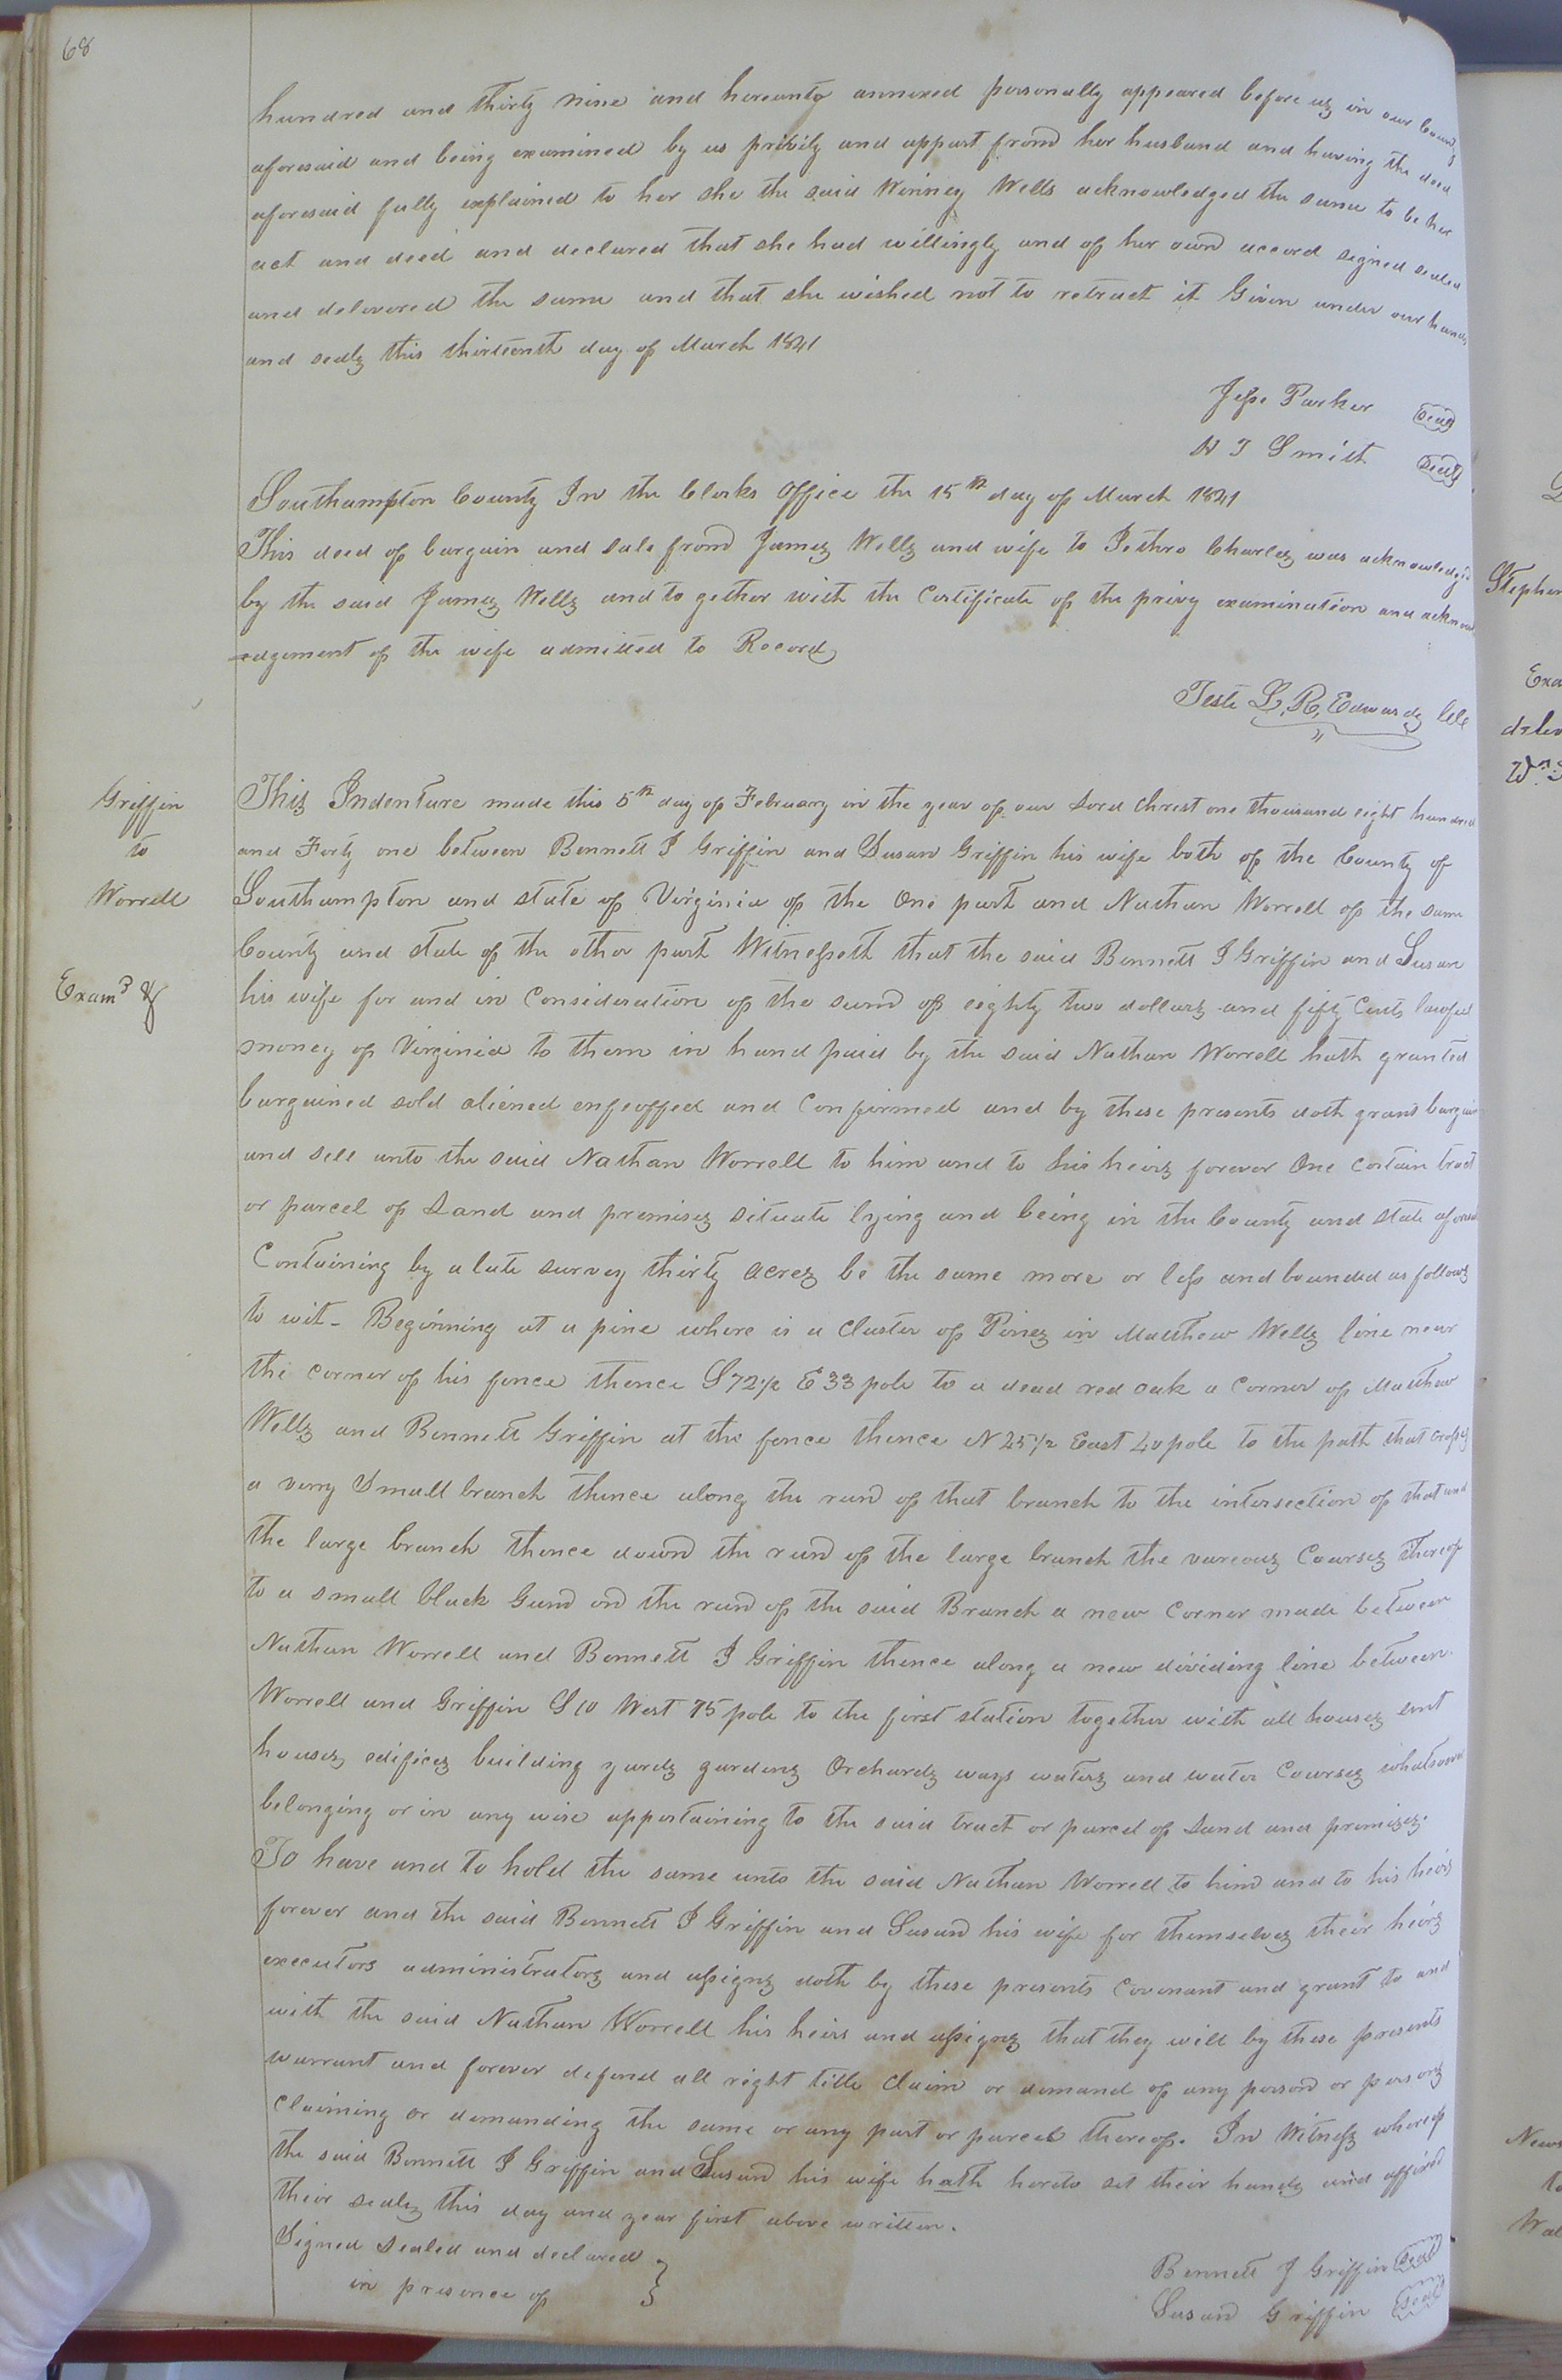 68
hundred and thirty nine and hereunto annexed personally appeared before us in our County
aforesaid and being examined by us privily and appart from her husband and having the deed
aforesaid fully explained to her she the said Winney Wells acknowledged the same to be her
act and deed and declared that she had willingly and of her own accord signed sealed
and delevered the same and that she wished not to retract it Given under our hands
and seals this thirteenth day of March 1841
Jesse Parker Seal
N T Smith Seal
Southampton County In the Clerks Office the 15th day of March 1841
This deed of bargain and sale from James Wells and wife to Jethro Charles was acknowledged
by the said James Wells and to gether with the Certificate of the privy examination and acknowl
=edgement of the wife admitted to Record
Teste L, R, Edwards Clk
Griffin
to
Worrell
Examd &
This Indenture made this 5th day of February in the year of our Lord Christ one thousand eight hundred
and Forty one between Bennett J Griffin and Susan Griffin his wife both of the County of
Southampton and state of Virginia of the One part and Nathan Worrell of the same
County and state of the other part Witnesseth that the said Bennett J Griffin and Susan
his wife for and in Consideration of the sum of eighty two dollars and fifty Cents lawful
money of Virginia to them in hand paid by the said Nathan Worrell hath granted
bargained sold aliened enfeoffed and Confirmed and by these presents doth grant bargain
and sell unto the said Nathan Worrell to him and to his heirs forever One certain tract
or parcel of Land and premises situate lying and being in the County and state aforesaid
Containing by a late survey thirty acres be the same more or less and bounded as follows
to wit - Beginning at a pine where is a Cluster of Pines in Matthew Wells line near
the corner of his fence thence S 72 1/2 E 33 pole to a dead red oak a Corner of Matthew
Wells and Bennett Griffin at the fence thence N 25 1/2 East 40 pole to the path that crosses
a very Small branch thence along the run of that branch to the intersection of that and
the large branch thence down the run of the large branch the vareous Courses thereof
to a small black Gum on the run of the said Branch a new Corner made between
Nathan Worrell and Bennett J Griffin thence along a new dividing line between
Worrell and Griffin S 10 West 75 pole to the first station together with all houses out
houses edifices building yards gardens Orchards ways waters and water Courses whatsoever
belonging or in any wise appertaining to the said tract or parcel of Land and premises.
To have and to hold the same unto the said Nathan Worrell to him and to his heirs
forever and the said Bennett J Griffin and Susan his wife for themselves their heirs
executors administrators and assigns doth by these presents Covenant and grant to and
with the said Nathan Worrell his heirs and assigns that they will by these presents
warrant and forever defend all right title Claim or demand of any person or persons
Claiming or demanding the same or any part or parcel thereof. In Witness whereof
the said Bennett J Griffin and Susan his wife hath hereto set their hands and affixed
their seals this day and year first above written.
Signed Sealed and declared }
in presence of
Bennett J Griffin Seal
Susan Griffin Seal
Stephen